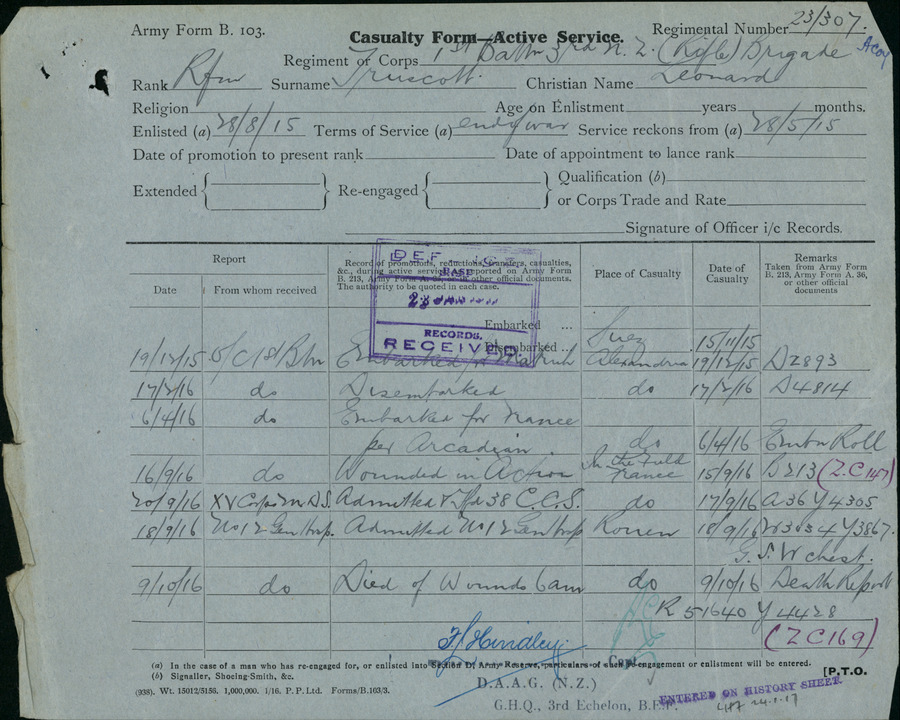 Army Form B. 103.
Casualty Form—Active Service.
Regimental Number 23/307.
Regiment or Corps 1st Battn 3rd N.Z. (Rifle) Brigade A coy
Rank Rfm Surname Truscott. Christian Name Leonard
Religion Age on Enlistment years months.
Enlisted (a) 28/8/15 Terms of Service (a) end of war Service reckons from (a) 28/5/15
Date of promotion to present rank Date of appointment to lance rank
Extended Re-engaged Qualification (b)
or Corps Trade and Rate
Signature of Officer i/c Records.
Report
Date From whom received
Record of promotions, reductions, transfers, casualties, &c., during active service, as reported on Army Form B. 213, Army Form A. 36, or other official documents. The authority to be quoted in each case.
Place of Casualty
Date of Casualty
Remarks
Taken from Army Form B. 213, Army Form A. 36, or other official documents
BASE
RECORDS.
RECEIVED
Embarked ... Suez 15/11/15
Disembarked ...
19/12/15 O/C 1st Btn Embarked for Matruh Alexandria 19/12/15 D2893
17/2/16 do Disembarked do 17/2/16 D4814
6/4/16 do Embarked for France
per Arcadian. do 6/4/16 Embn Roll
16/9/16 do Wounded in Action In the Field France 15/9/16 B213 (Z.C 147)
20/9/16 XV Corps M.D.S. Admitted & Tfd 38 C.C.S. do 17/9/16 A36 Y4305
18/9/16 No 12 Gen Hosp. Admitted No 12 Gen Hosp Rouen 18/9/16 W3034 Y3867.
G.S.W chest.
9/10/16 do Died of Wounds 6am do 9/10/16 Death Report
R 51640 Y 4428
(ZC169)
F Hindley.
(a) In the case of a man who has re-engaged for, or enlisted into Section D, Army Reserve, particulars of such re-engagement or enlistment will be entered.
(b) Signaller, Shoeing-Smith, &c.
[P.T.O.
Capt
D.A.A.G. (N.Z.)
(938). Wt. 15012/3156. 1,000,000. 1/16. P.P. Ltd. Forms/B.103/3.
G.H.Q., 3rd Echelon, B.E.F.
ENTERED ON HISTORY SHEET.
24.1.17